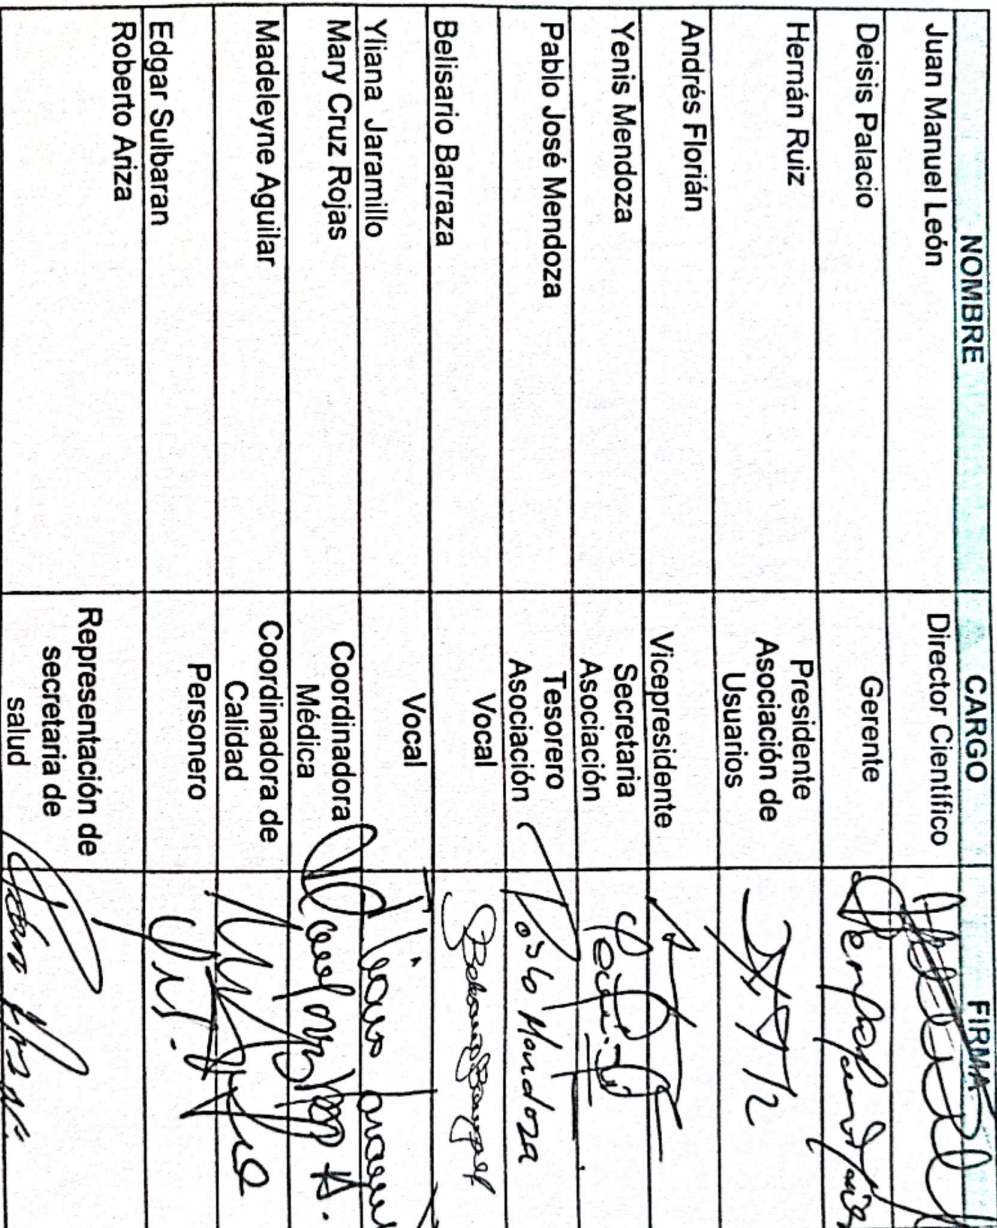 NOMBRE CARGO FIRMA
Juan Manuel León Director Científico
Deisis Palacio Gerente
Hernán Ruiz Presidente
Asociación de
Usuarios
Andrés Florián Vicepresidente
Yenis Mendoza Secretaria
Asociación
Pablo José Mendoza Tesorero
Asociación Pablo Mendoza
Belisario Barraza Vocal
Yliana Jaramillo Vocal
Mary Cruz Rojas Coordinadora
Médica
Madeleyne Aguilar Coordinadora de
Calidad
Edgar Sulbaran Personero
Roberto Ariza Representación de
secretaria de
salud